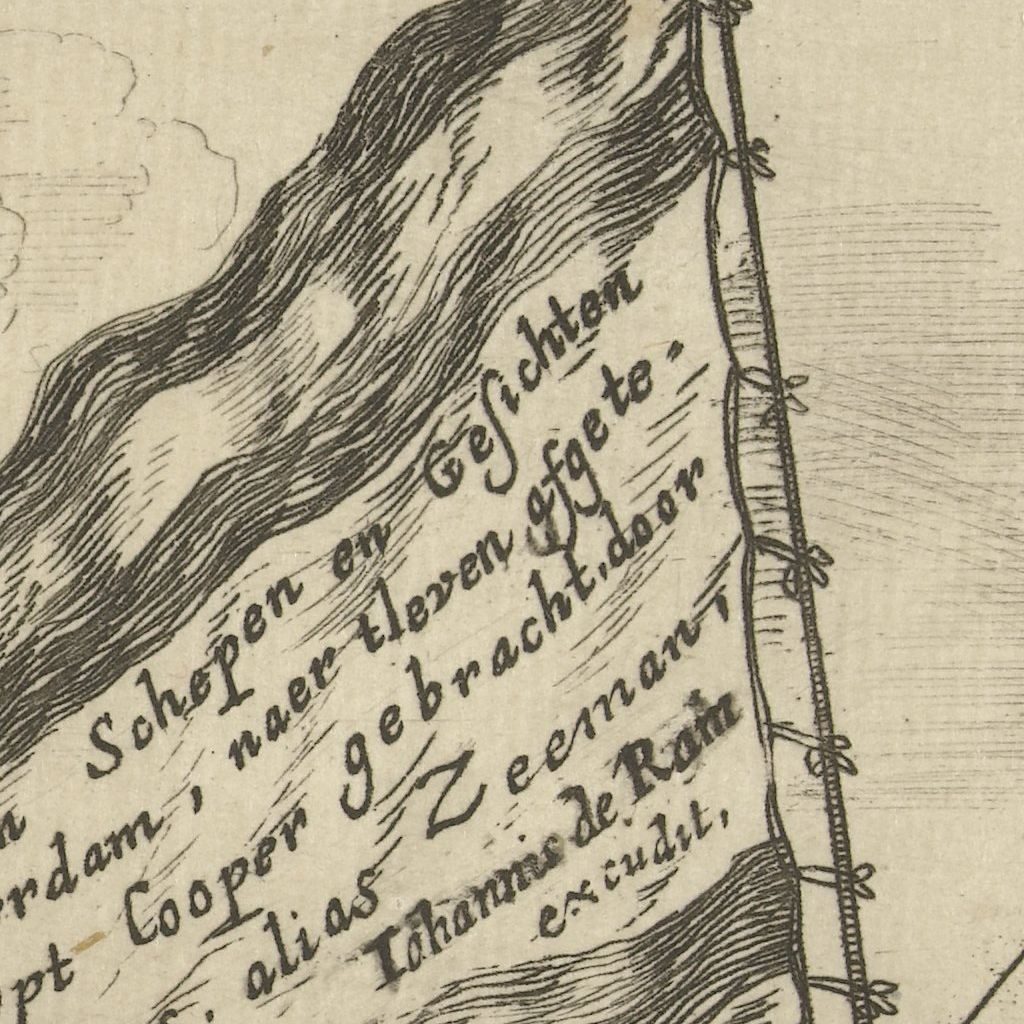 Schepen en Geſichten
rdam, naer tleven afgete-
Cooper gebracht, door
alias Zeeman,
Iohannis de Ram
excudit,